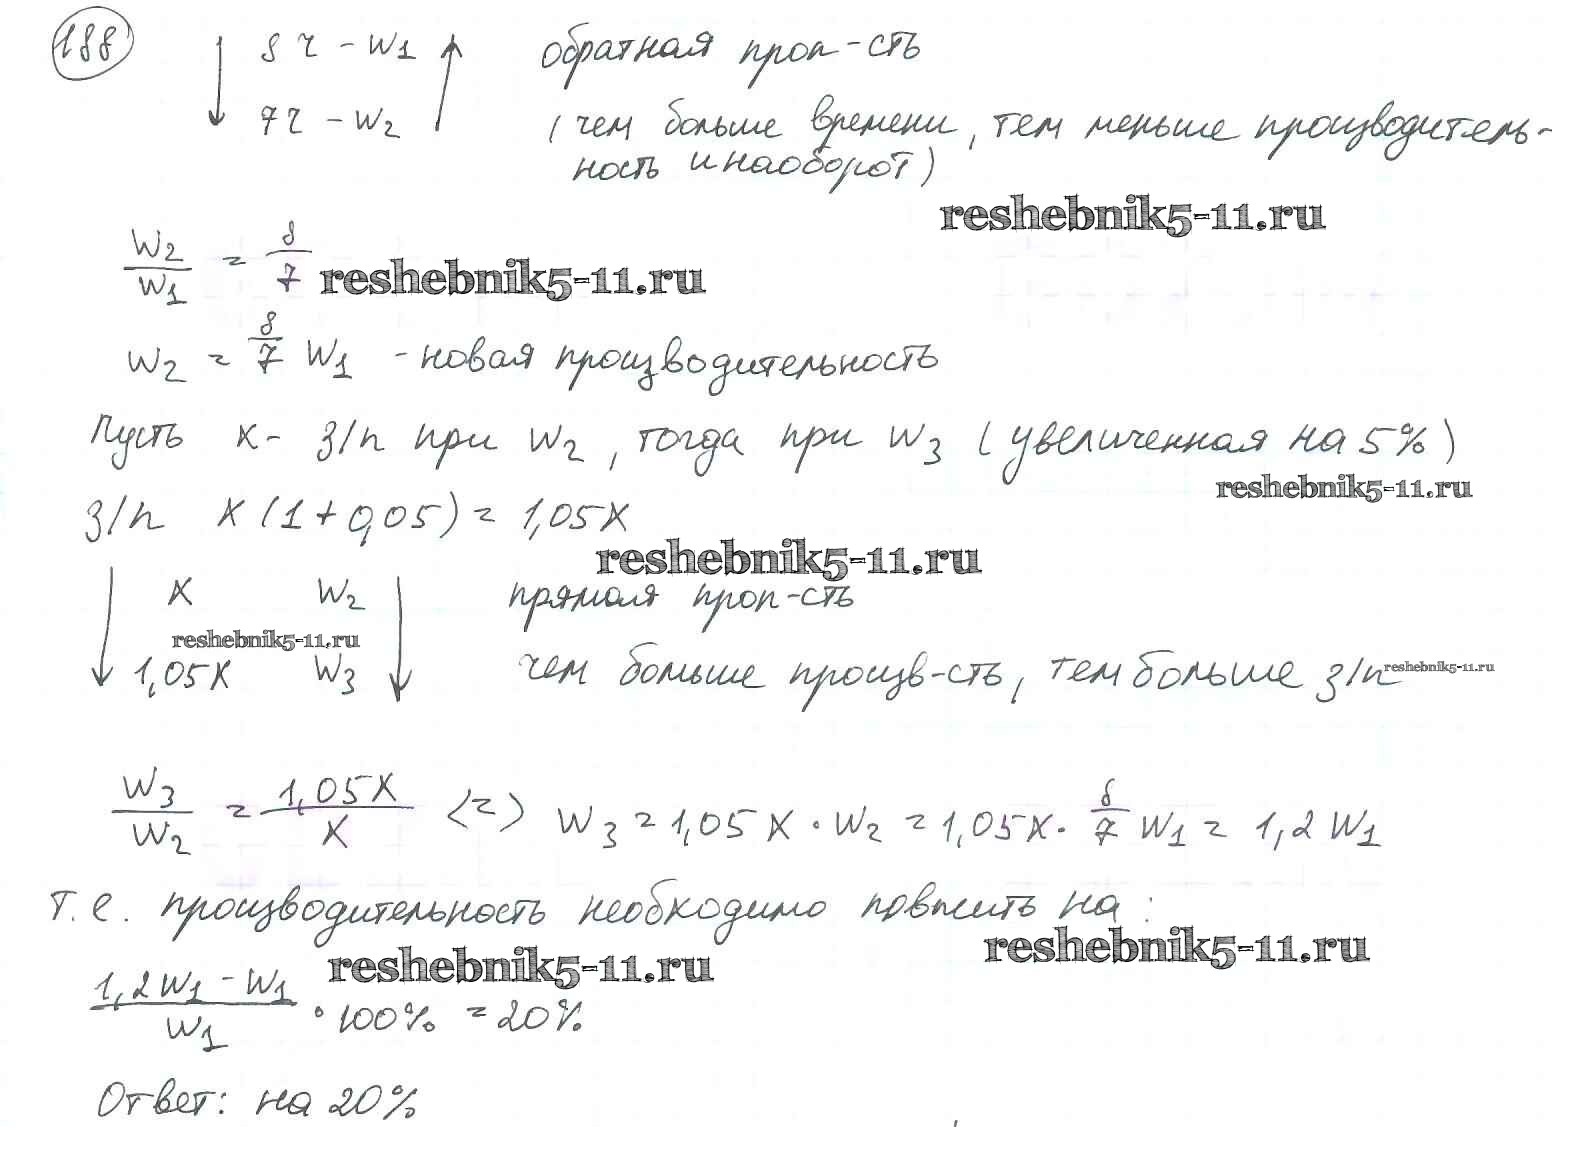 188 8 ч - W1 обратная проп-сть
7 ч - W2 (чем больше времени, тем меньше производитель-
ность и наоборот)
reshebnik5-11.ru
W2/W1 = 8/7 reshebnik5-11.ru
W2 = 8/7 W1 - новая производительность
Пусть x - з/п при W2, тогда при W3 (увеличенная на 5%)
reshebnik5-11.ru
з/п x(1+0,05) = 1,05x
reshebnik5-11.ru
x W2 прямая проп-сть
reshebnik5-11.ru
1,05x W3 чем больше произв-сть, тем больше з/п reshebnik5-11.ru
W3/W2 = 1,05x/x <=> W3 = 1,05x · W2 = 1,05x · 8/7 W1 = 1,2 W1
т.е. производительность необходимо повысить на:
reshebnik5-11.ru reshebnik5-11.ru
(1,2W1 - W1)/W1 · 100% = 20%
Ответ: на 20%